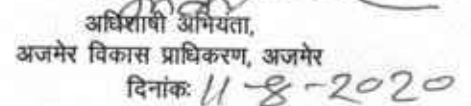 अधिशाषी अभियता,
अजमेर विकास प्राधिकरण, अजमेर
दिनांक: 11-8-2020